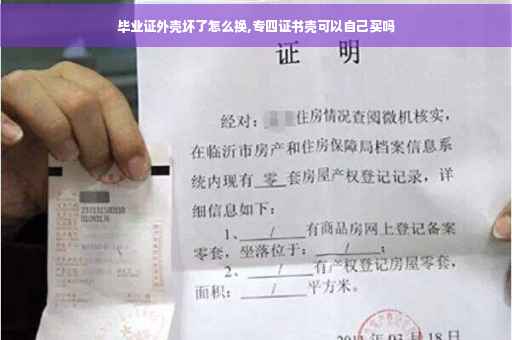 毕业证外壳坏了怎么换,专四证书壳可以自己买吗
证 明
经对: 住房情况查阅微机核实,
在临沂市房产和住房保障局档案信息系
统内现有 零 套房屋产权登记记录,详
细信息如下:
1、 / 有商品房网上登记备案
零套,坐落位于: / ;
2、 / 有产权登记房屋零套,
面积: / 平方米。
月 18 日